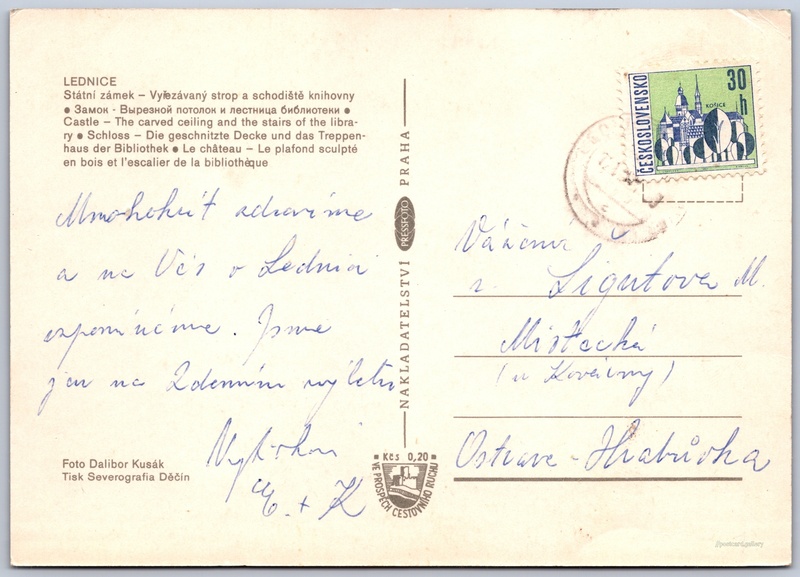 LEDNICE
Státní zámek – Vyřezávaný strop a schodiště knihovny
● Замок - Вырезной потолок и лестница библиотеки ●
Castle – The carved ceiling and the stairs of the libra-
ry ● Schloss – Die geschnitzte Decke und das Treppen-
haus der Bibliothek ● Le château – Le plafond sculpté
en bois et l'escalier de la bibliothèque
Mnohokrát zdravíme
a na Vás v Lednici
vzpomínáme. Jsme
jen na 2denním výletu
E. + K
Foto Dalibor Kusák
Tisk Severografia Děčín
NAKLADATELSTVÍ PRESSFOTO PRAHA
Kčs 0,20
VE PROSPĚCH CESTOVNÍHO RUCHU
ČESKOSLOVENSKO
30 h
KOŠICE
Vážená
Ligutova M.
Místecká
(u Kovárny)
Ostrava - Hrabůvka
@postcard.gallery